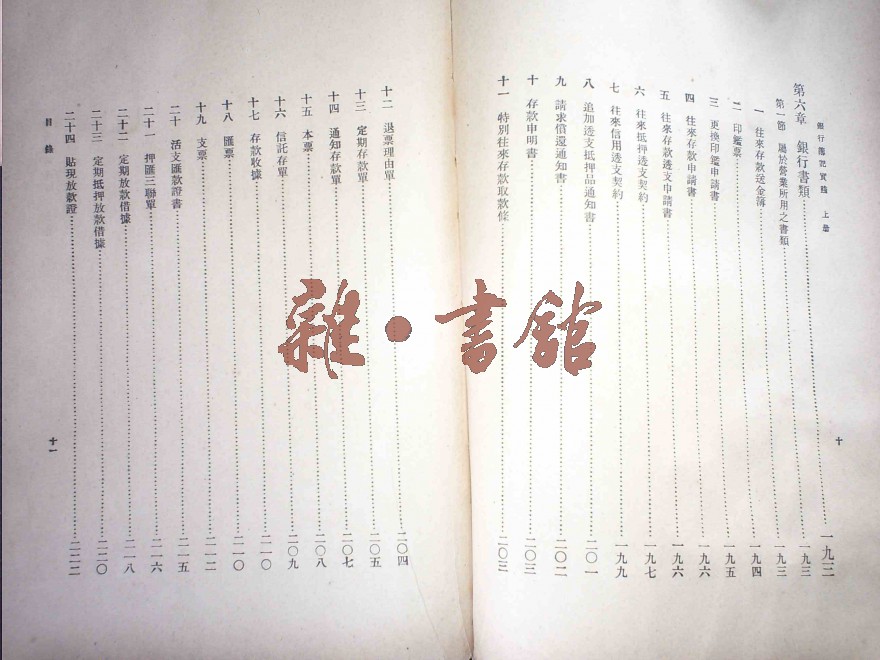 銀行簿記實踐 上册
十
第六章 銀行書類……一九三
第一節 屬於營業所用之書類……一九三
一 往來存款送金簿……一九三
二 印鑑票……一九四
三 更換印鑑申請書……一九五
四 往來存款申請書……一九六
五 往來存款透支申請書……一九六
六 往來抵押透支契約……一九七
七 往來信用透支契約……一九九
八 追加透支抵押品通知書……二〇一
九 請求償還通知書……二〇二
十 存款申明書……二〇三
十一 特別往來存款取款條……二〇三
十二 退票理由單……二〇四
十三 定期存款單……二〇五
十四 通知存款單……二〇七
十五 本票……二〇八
十六 信託存單……二〇九
十七 存款收據……二一〇
十八 匯票……二一〇
十九 支票……二一二
二十 活支匯款證書……二一五
二十一 押匯三聯單……二一六
二十二 定期放款借據……二一八
二十三 定期抵押放款借據……二二〇
二十四 貼現放款證……二二二
目錄
十一
雜·書館